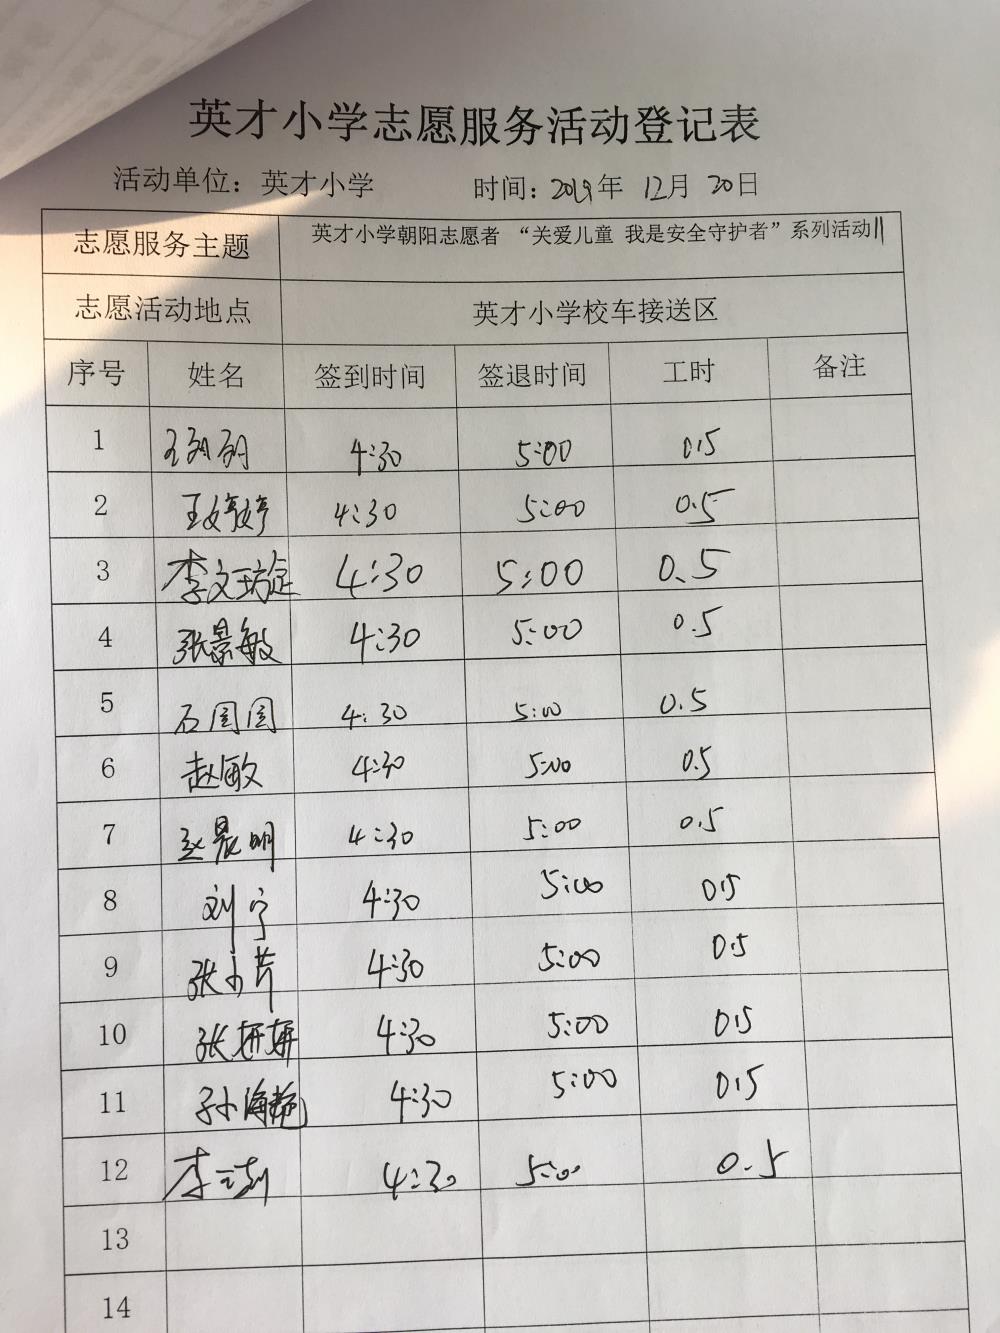 英才小学志愿服务活动登记表
活动单位：英才小学 时间：2019年 12月 20日
志愿服务主题 英才小学朝阳志愿者 “关爱儿童 我是安全守护者”系列活动11
志愿活动地点 英才小学校车接送区
序号 姓名 签到时间 签退时间 工时 备注
1 4:30 5:00 0.5
2 王婷婷 4:30 5:00 0.5
3 李文 4:30 5:00 0.5
4 张景敏 4:30 5:00 0.5
5 石圆圆 4:30 5:00 0.5
6 赵敏 4:30 5:00 0.5
7 赵晨明 4:30 5:00 0.5
8 刘宁 4:30 5:00 0.5
9 张小芹 4:30 5:00 0.5
10 张妍妍 4:30 5:00 0.5
11 孙海艳 4:30 5:00 0.5
12 李 4:30 5:00 0.5
13
14